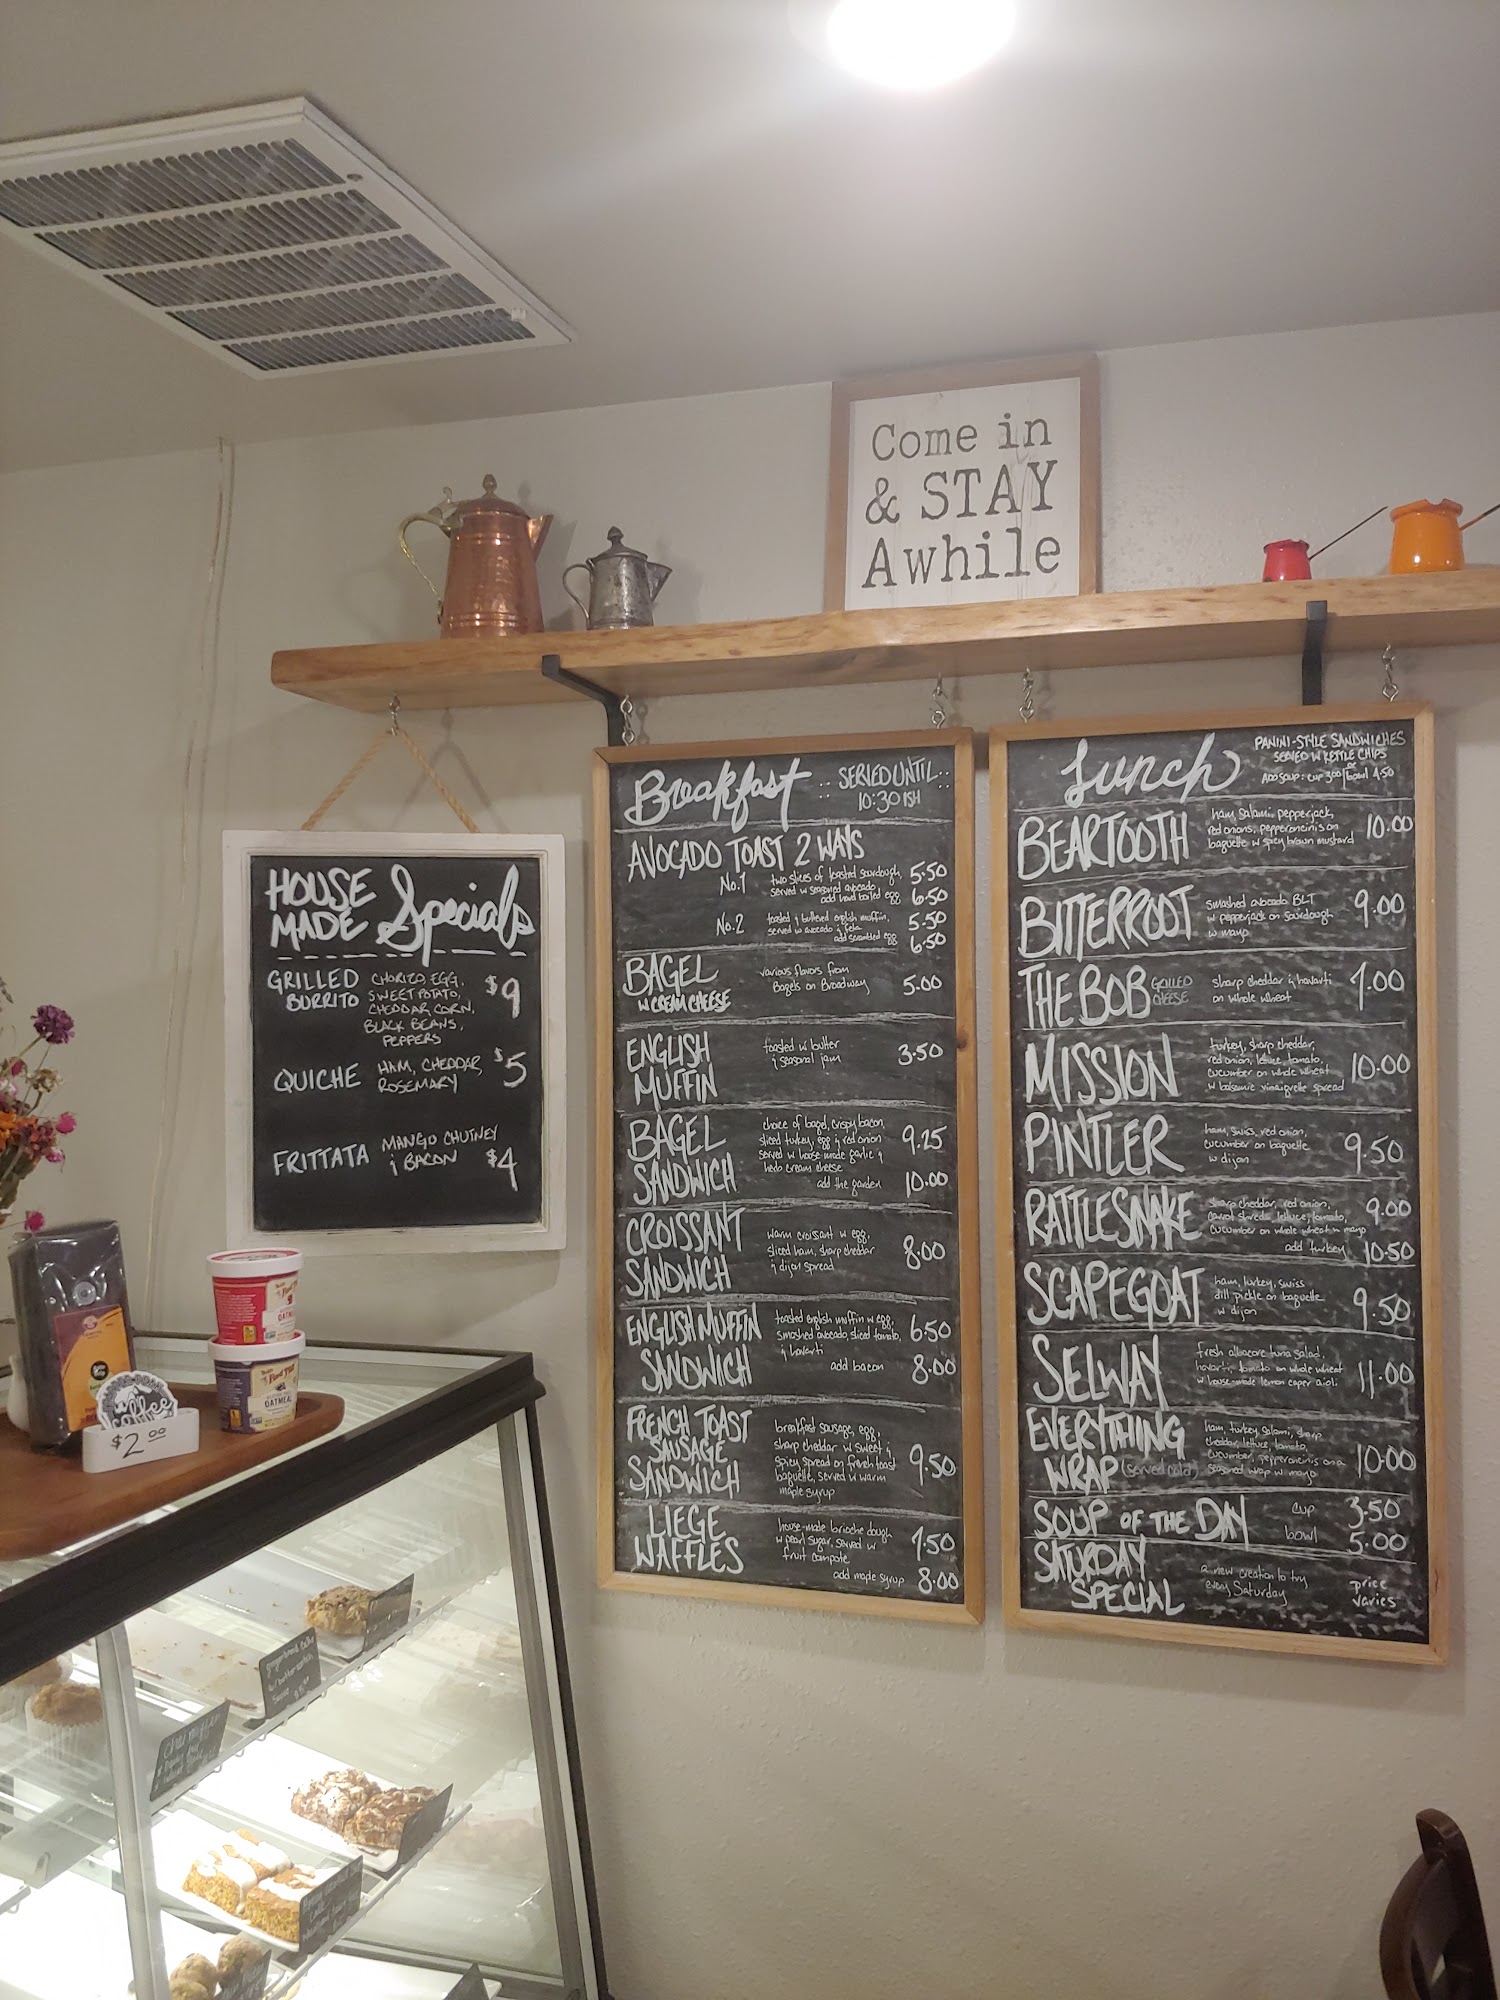 Come in
& STAY
Awhile
HOUSE
MADE Specials
GRILLED
BURRITO
CHORIZO EGG,
SWEET POTATO,
CHEDDAR, CORN,
BLACK BEANS,
PEPPERS
$9
QUICHE
HAM, CHEDDAR,
ROSEMARY
$5
FRITTATA
MANGO CHUTNEY
& BACON
$4
Breakfast
:: SERVED UNTIL ::
10:30ISH
AVOCADO TOAST 2 WAYS
No.1
two slices of toasted sourdough, 5.50
served w seasoned avocado
add hard boiled egg 6.50
No.2
toasted & buttered english muffin, 5.50
served w avocado & feta
add scrambled egg 6.50
BAGEL
W CREAM CHEESE
various flavors from
Bagels on Broadway
5.00
ENGLISH
MUFFIN
toasted w butter
& seasonal jam
3.50
BAGEL
SANDWICH
choice of bagel, crispy bacon,
sliced turkey, egg & red onion
served w house made garlic &
herb cream cheese
9.25
add the garden 10.00
CROISSANT
SANDWICH
warm croissant w egg,
sliced ham, sharp cheddar
& dijon spread
8.00
ENGLISH MUFFIN
SANDWICH
toasted english muffin w egg,
smashed avocado, sliced tomato,
& havarti
6.50
add bacon 8.00
FRENCH TOAST
SAUSAGE
SANDWICH
breakfast sausage, egg,
sharp cheddar w sweet &
spicy spread on french toast
baguette, served w warm
maple syrup
9.50
LIEGE
WAFFLES
house-made brioche dough
w pearl sugar, served w
fruit compote
7.50
add maple syrup 8.00
Lunch
PANINI-STYLE SANDWICHES
SERVED W KETTLE CHIPS
or
ADD SOUP: cup 3.00/bowl 4.50
BEARTOOTH
ham, salami, pepperjack,
red onions, pepperoncinis on
baguette w spicy brown mustard
10.00
BITTERROOT
smashed avocado BLT
w pepperjack on sourdough
w mayo
9.00
THE BOB GRILLED
CHEESE
sharp cheddar & havarti
on whole wheat
7.00
MISSION
turkey, sharp cheddar,
red onion, lettuce, tomato,
cucumber on whole wheat
w balsamic vinaigrette spread
10.00
PINTLER
ham, swiss, red onion,
cucumber on baguette
w dijon
9.50
RATTLESNAKE
sharp cheddar, red onion,
carrot shreds, lettuce, tomato,
cucumber on whole wheat w mayo
9.00
add turkey 10.50
SCAPEGOAT
ham, turkey, swiss
dill pickle on baguette
w dijon
9.50
SELWAY
fresh albacore tuna salad,
havarti, tomato on whole wheat
w house-made lemon caper aioli
11.00
EVERYTHING
WRAP (served cold)
ham, turkey, salami, sharp
cheddar, lettuce, tomato,
cucumber, pepperoncinis on a
seasoned wrap w mayo
10.00
SOUP OF THE DAY
cup 3.50
bowl 5.00
SATURDAY
SPECIAL
a new creation to try
every Saturday
price
varies
coffee
$2.00
OATMEAL